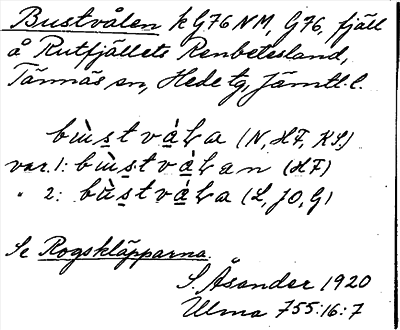 Bustvålen k G76 NM, G76, fjäll
å Rutfjällets Renbetesland,
Tännäs sn, Hede tg, Jämtl. l.
bu̇̀s̱två̱̀ɫa (N, HF, KS.)
var. 1: bu̇̀s̱två̱̀ɫan (HF)
" 2: bu̇̀s̱två̱̀ɫa (L, JO, G)
Se Rogskläpparna.
S. Åsander 1920
Ulma 755:16:7